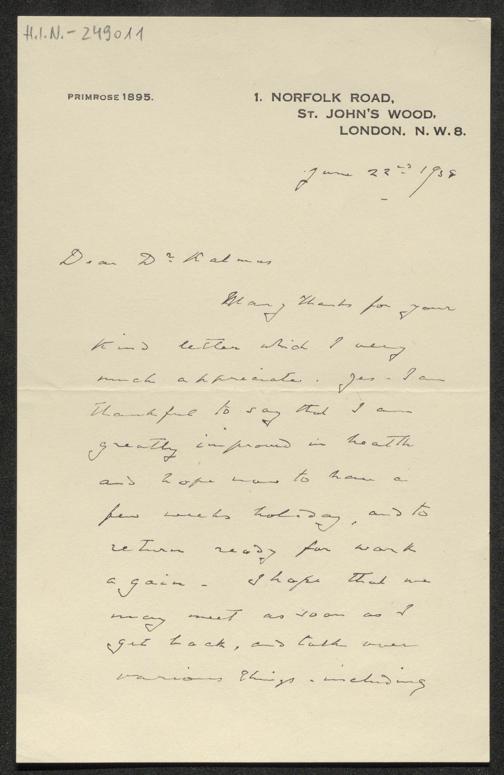 H.I.N.- 249011
PRIMROSE 1895.
1. NORFOLK ROAD,
ST. JOHN'S WOOD,
LONDON. N.W.8.
June 22nd 1938
Dear Dr Kalmus
Many thanks for your
kind letter which I very
much appreciate. Yes - I am
thankful to say that I am
greatly improved in health
and hope now to have a
few weeks holiday, and to
return ready for work
again - I hope that we
may meet as soon as I
get back, and talk over
various things - including